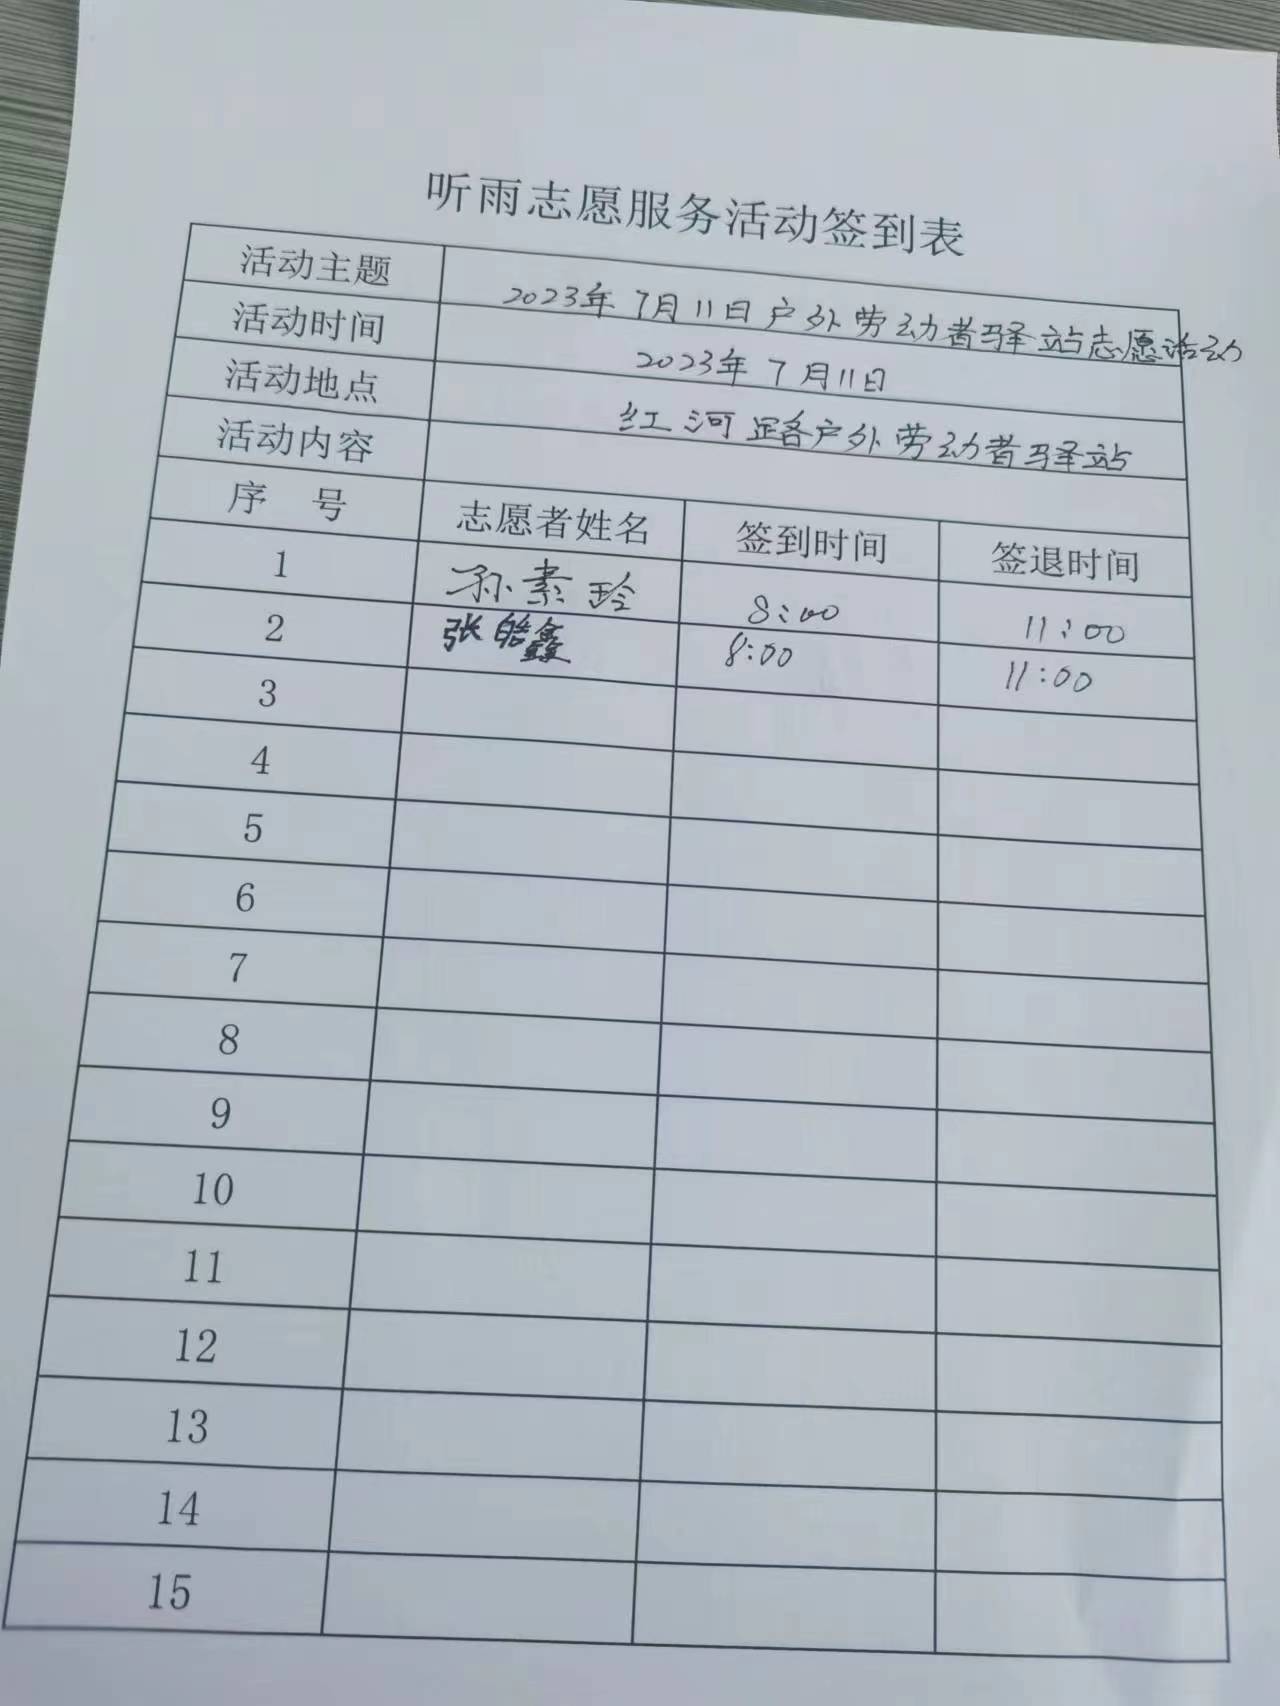 听雨志愿服务活动签到表
活动主题 2023年7月11日户外劳动者驿站志愿活动
活动时间 2023年7月11日
活动地点 红河路户外劳动者驿站
活动内容
序 号 志愿者姓名 签到时间 签退时间
1 孙素玲 8:00 11:00
2 张皓鑫 8:00 11:00
3
4
5
6
7
8
9
10
11
12
13
14
15